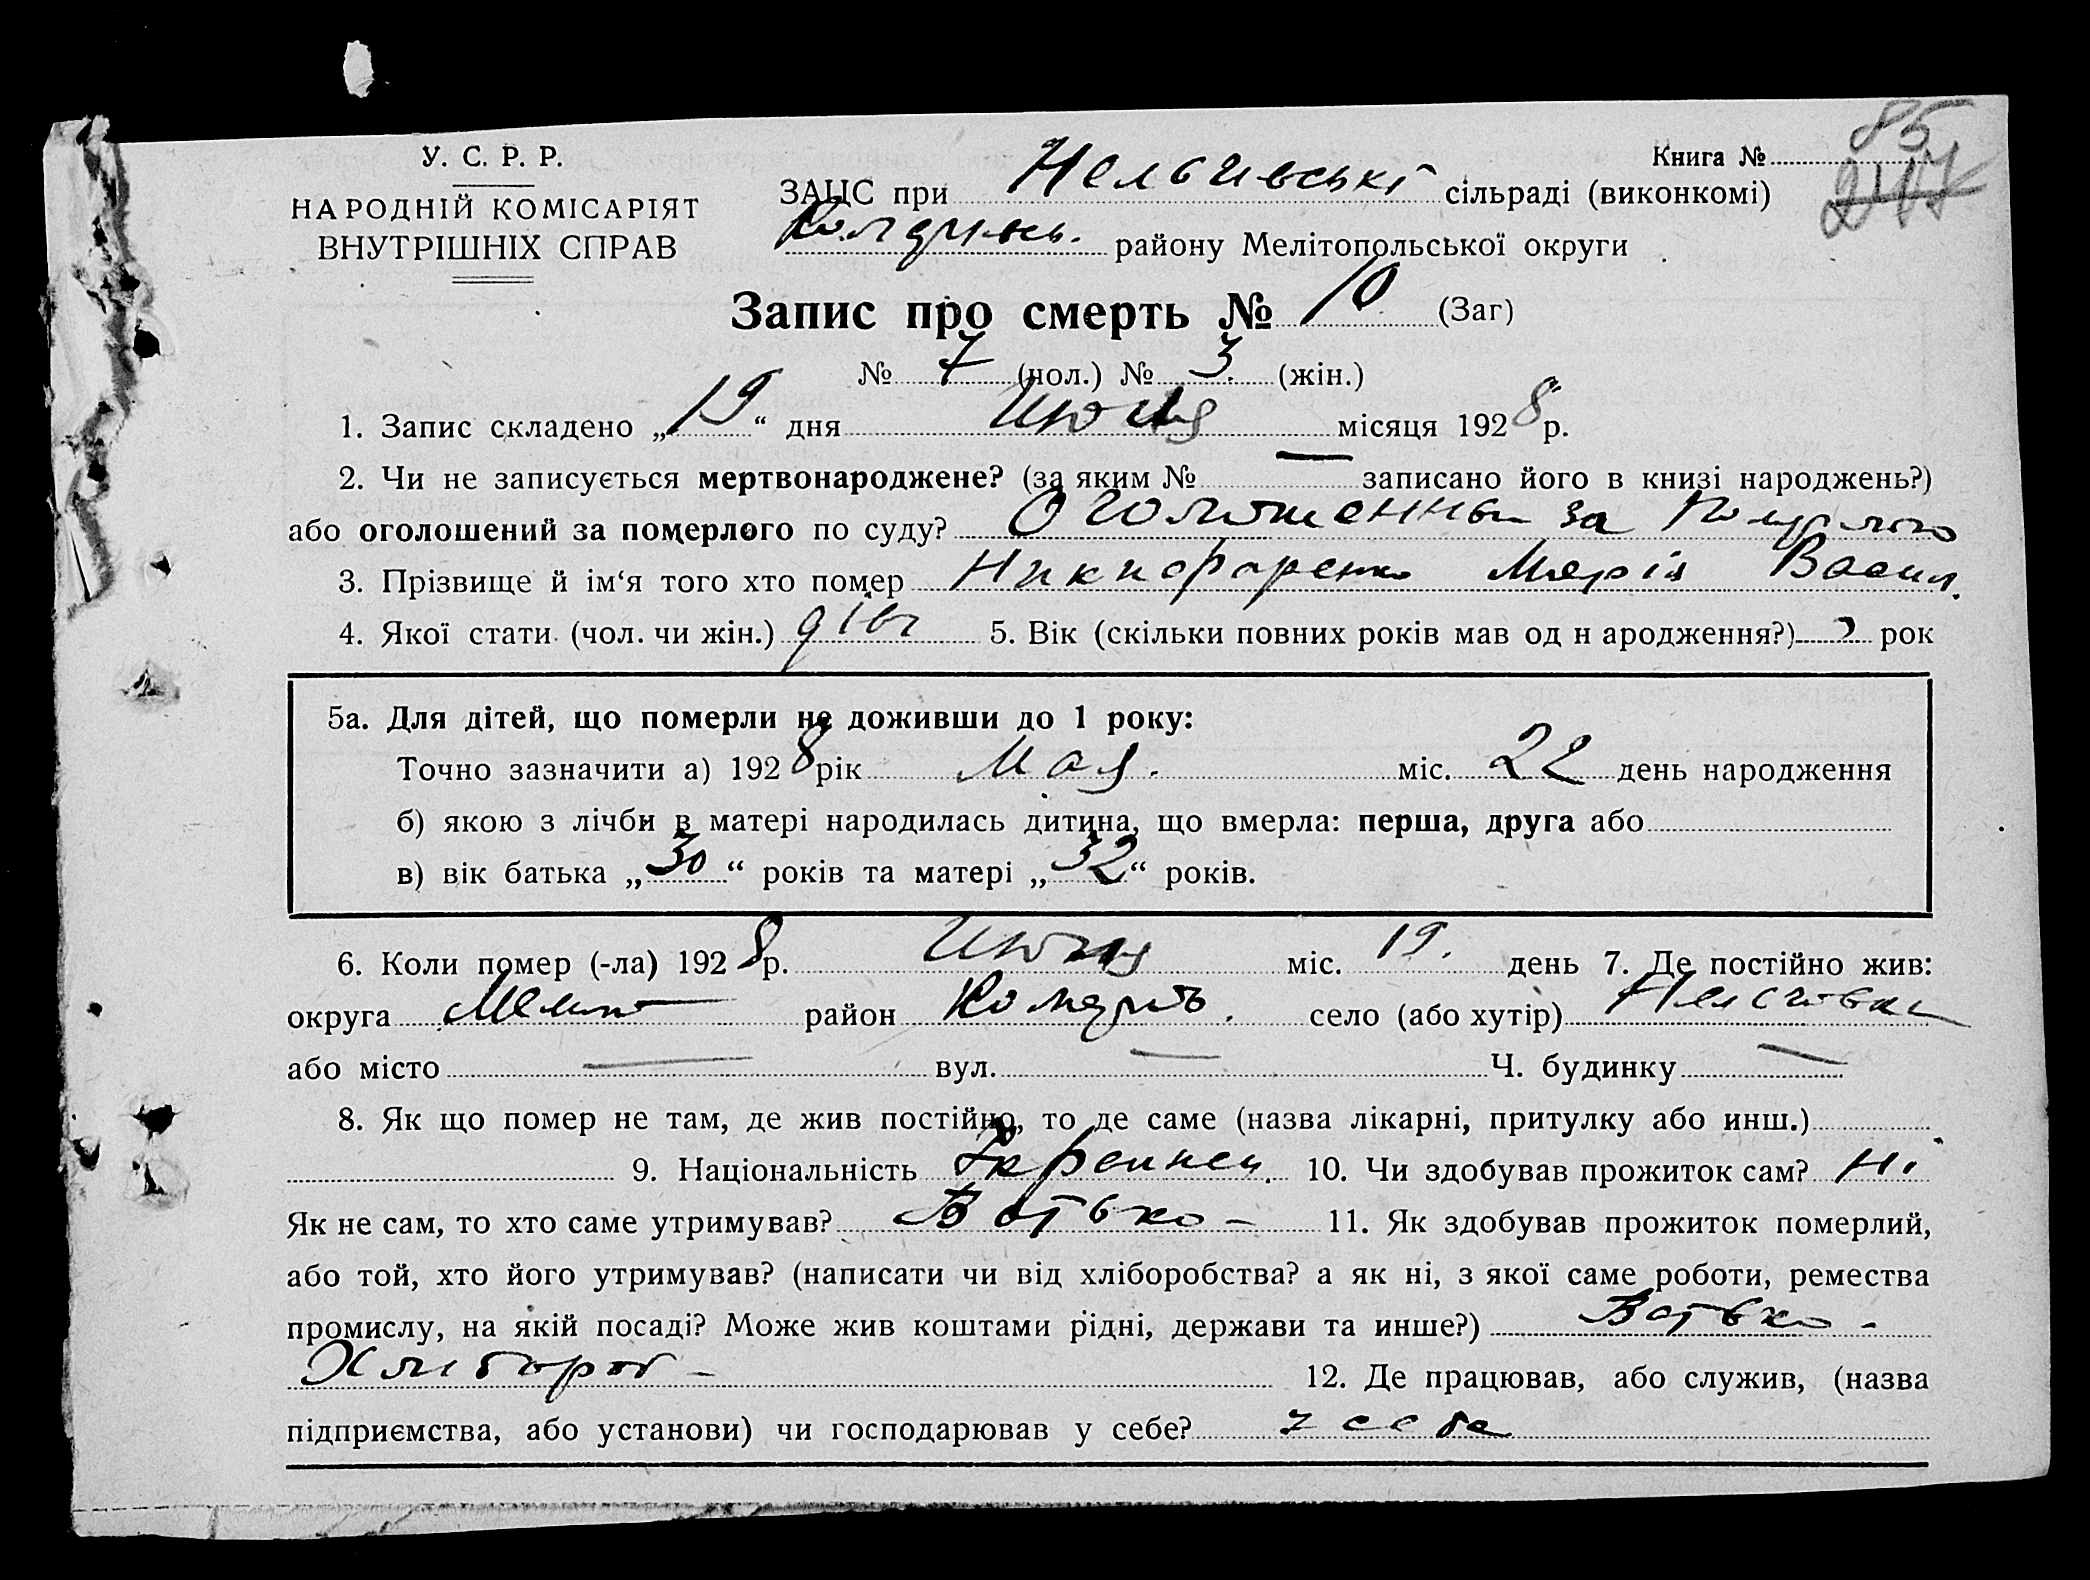 У. С. Р. Р.
НАРОДНІЙ КОМІСАРІЯТ
ВНУТРІШНІХ СПРАВ
Книга № 85
ЗАЦС при Нельгивські сільраді (виконкомі)
району Мелітопольської округи
Запис про смерть № 10 (Заг)
№ 7 (чол.) № 3 (жін.)
1. Запис складено „19“ дня Июня місяця 1928 р.
2. Чи не записується мертвонароджене? (за яким № — записано його в книзі народжень?)
або оголошений за померлого по суду? за
3. Прізвище й ім‘я того хто помер Никифоренко Марія Васил.
4. Якої стати (чол. чи жін.) дівч 5. Вік (скільки повних років мав од н ародження?) рок
5а. Для дітей, що померли не доживши до 1 року:
Точно зазначити а) 1928 рік Мая. міс. 22 день народження
б) якою з лічби в матері народилась дитина, що вмерла: перша, друга або
в) вік батька „30“ років та матері „32“ років.
6. Коли помер (-ла) 1928 р. Июня міс. 19. день 7. Де постійно жив:
округа Меліт район село (або хутір)
або місто — вул. — Ч. будинку —
8. Як що помер не там, де жив постійно, то де саме (назва лікарні, притулку або инш.)
9. Національність Украинец. 10. Чи здобував прожиток сам? Ні
Як не сам, то хто саме утримував? Батько - 11. Як здобував прожиток померлий,
або той, хто його утримував? (написати чи від хліборобства? а як ні, з якої саме роботи, ремества
промислу, на якій посаді? Може жив коштами рідні, держави та инше?) Батько -
Хлибороб - 12. Де працював, або служив, (назва
підприємства, або установи) чи господарював у себе? у себе